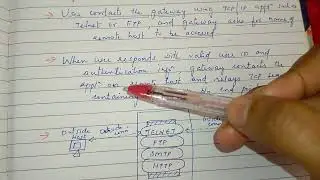 → User contacts the gateway using TCP IP appn like
Telnet or FTP and gateway asks for name of
remote host to be accessed
→ When user responds with valid user ID and
authentication info gateway contacts the
appn on host and relays TCP
containing
Outside
Host
TELNET
FTP
SMTP
HTTP